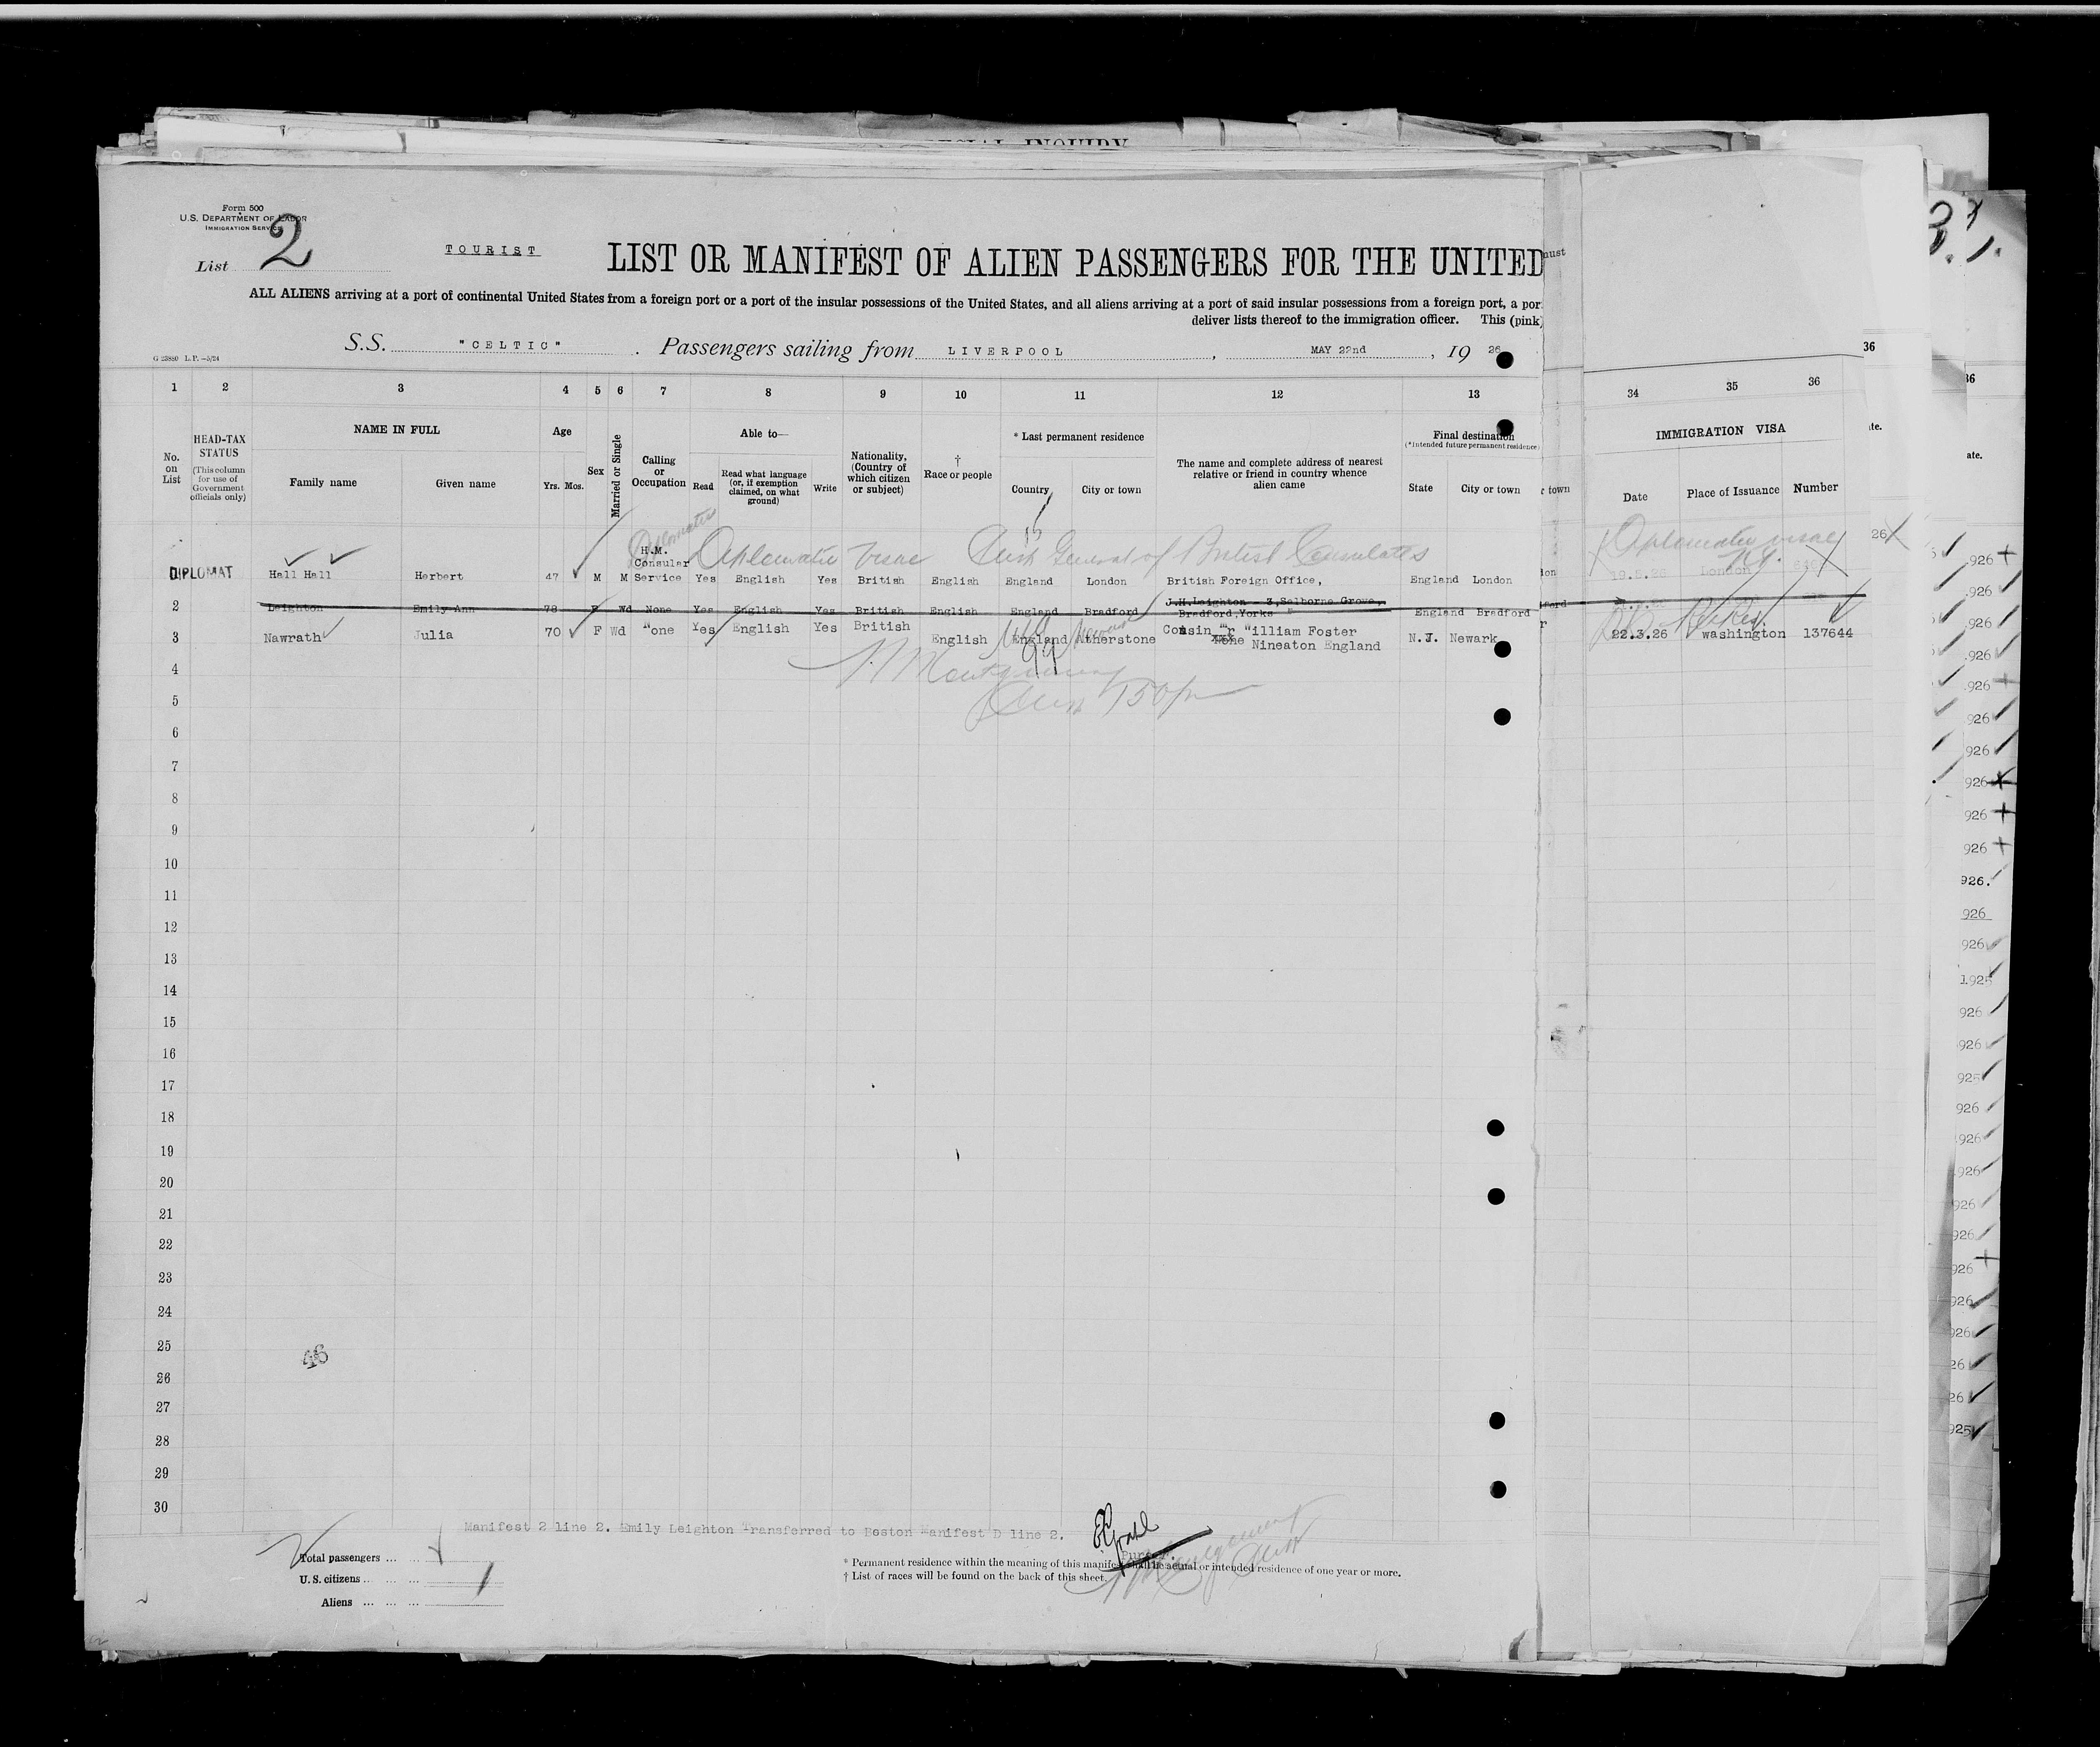 SPECIAL INQUIRY
Form 500
U.S. DEPARTMENT OF LABOR
IMMIGRATION SERVICE
List 2
TOURIST
LIST OR MANIFEST OF ALIEN PASSENGERS FOR THE UNITED
ALL ALIENS arriving at a port of continental United States from a foreign port or a port of the insular possessions of the United States, and all aliens arriving at a port of said insular possessions from a foreign port, a por
deliver lists thereof to the immigration officer. This (pink
G 23880 L.P.-5/24
S.S. "CELTIC" . Passengers sailing from LIVERPOOL , MAY 22nd , 19 26
1 2 3 4 5 6 7 8 9 10 11 12 13 34 35 36
No. on List
HEAD-TAX STATUS
(This column for use of Government officials only)
NAME IN FULL
Family name Given name
Age
Yrs. Mos.
Sex
Married or Single
Calling or Occupation
Able to—
Read
Read what language (or, if exemption claimed, on what ground)
Write
Nationality, (Country of which citizen or subject)
† Race or people
* Last permanent residence
Country City or town
The name and complete address of nearest relative or friend in country whence alien came
Final destination
(*Intended future permanent residence)
State City or town
IMMIGRATION VISA
Date Place of Issuance Number
Diplomatic
Diplomatic visae
Diplomatic visae
DIPLOMAT Hall Hall Herbert 47 M M H.M. Consular Service Yes English Yes British English England London British Foreign Office, England London 19.5.26 London
2 Leighton Emily Ann 78 F Wd None Yes English Yes British English England Bradford J.H.Leighton 3,Selborne Grove, Bradford,Yorks England Bradford
3 Nawrath Julia 70 F Wd None Yes English Yes British English England Atherstone Cousin Mr William Foster Nineaton England N.J. Newark 22.3.26 Washington 137644
4
5
6
7
8
9
10
11
12
13
14
15
16
17
18
19
20
21
22
23
24
25
26
27
28
29
30
46
Manifest 2 line 2. Emily Leighton Transferred to Boston Manifest D line 2.
Total passengers ... ...
U.S. citizens .. ... ...
Aliens ... ... ...
Purser.
* Permanent residence within the meaning of this manifest shall be actual or intended residence of one year or more.
† List of races will be found on the back of this sheet.